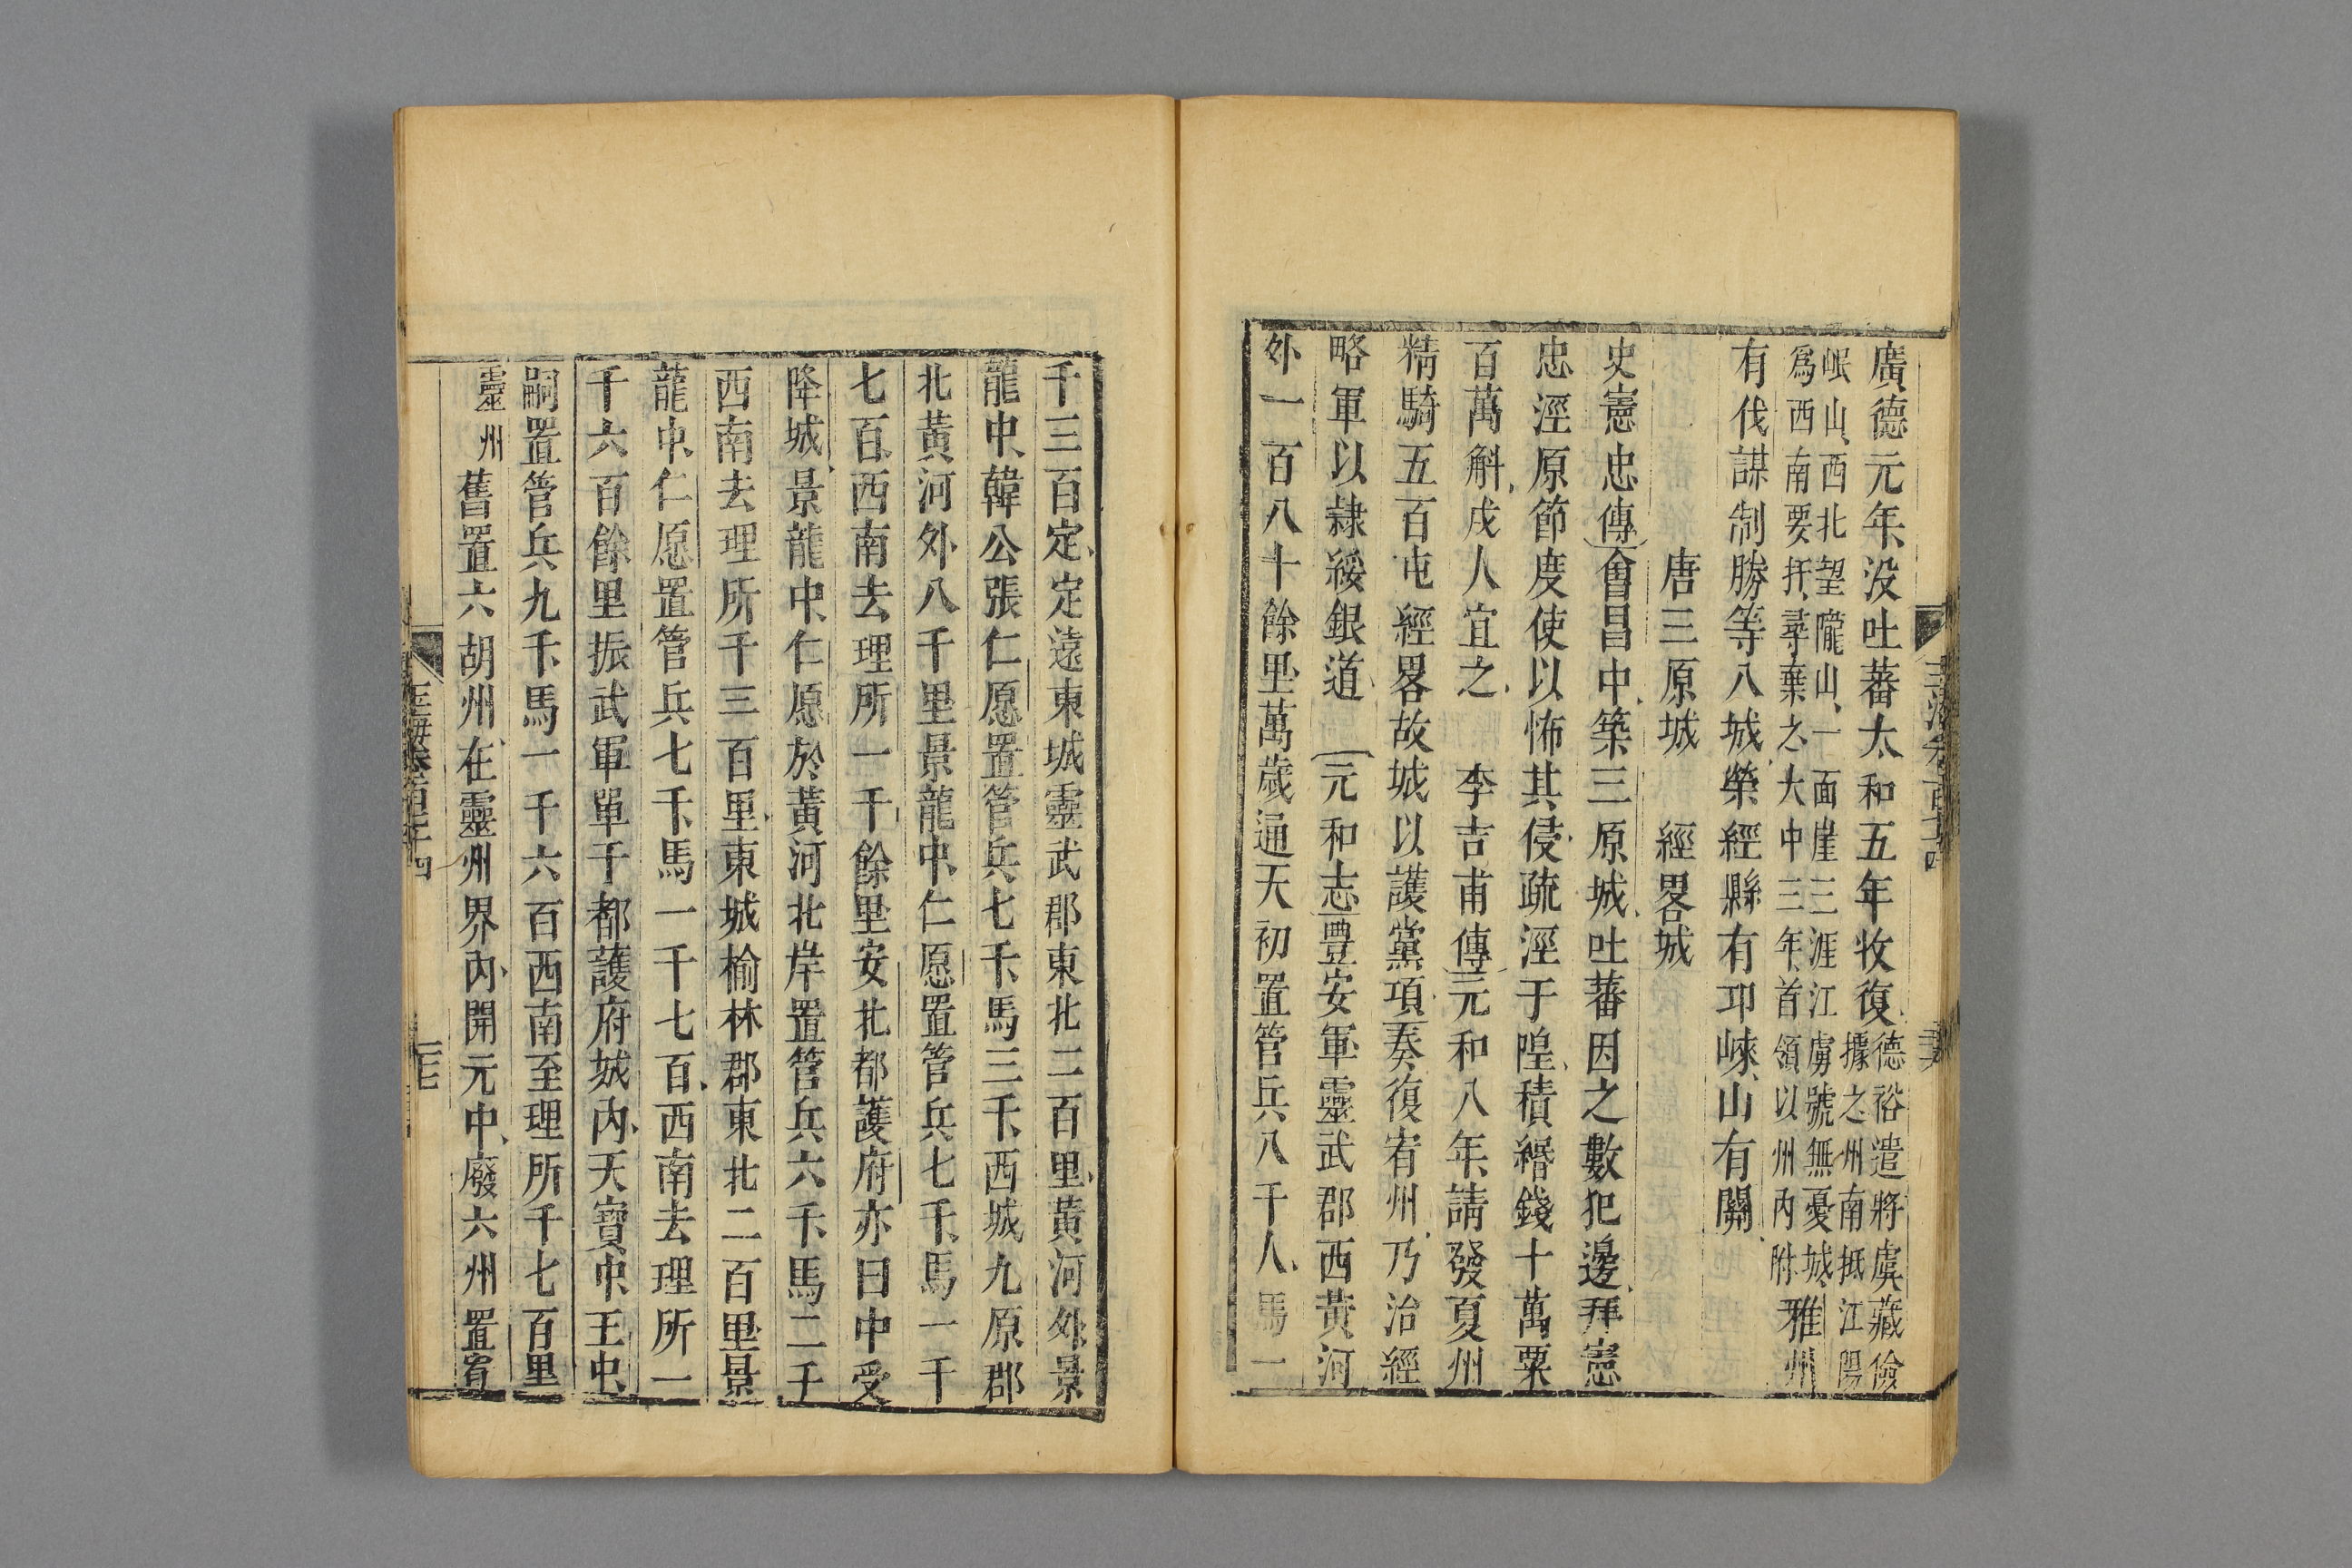 廣德元年没吐蕃太和五年收復德裕遣將虞藏儉據之州南抵江陽
岷山西北望隴山一面崖三涯江虜號無憂城
爲西南要扞尋棄之大中三年首領以州內附雅州
有伐謀制勝等八城榮經縣有邛崍山有關
唐三原城 經畧城
史憲忠傳會昌中築三原城吐蕃因之數犯邊拜憲
忠涇原節度使以怖其侵疏涇于隍積緡錢十萬粟
百萬斛戍人宜之 李吉甫傳元和八年請發夏州
精騎五百屯經畧故城以護黨項奏復宥州乃治經
略軍以隸綏銀道 元和志豐安軍靈武郡西黃河
外一百八十餘里萬歲通天初置管兵八千人馬一
千三百定定遠東城靈武郡東北二百里黃河外景
龍中韓公張仁愿置管兵七千馬三千西城九原郡
北黃河外八千里景龍中仁愿置管兵七千馬一千
七百西南去理所一千餘里安北都護府亦曰中受
降城景龍中仁愿於黃河北岸置管兵六千馬二千
西南去理所千三百里東城榆林郡東北二百里景
龍中仁愿置管兵七千馬一千七百西南去理所一
千六百餘里振武軍單于都護府城內天寶中王忠
嗣置管兵九千馬一千六百西南至理所千七百里
靈州舊置六胡州在靈州界內開元中廢六州置宥
玉海卷一百七十四
二七